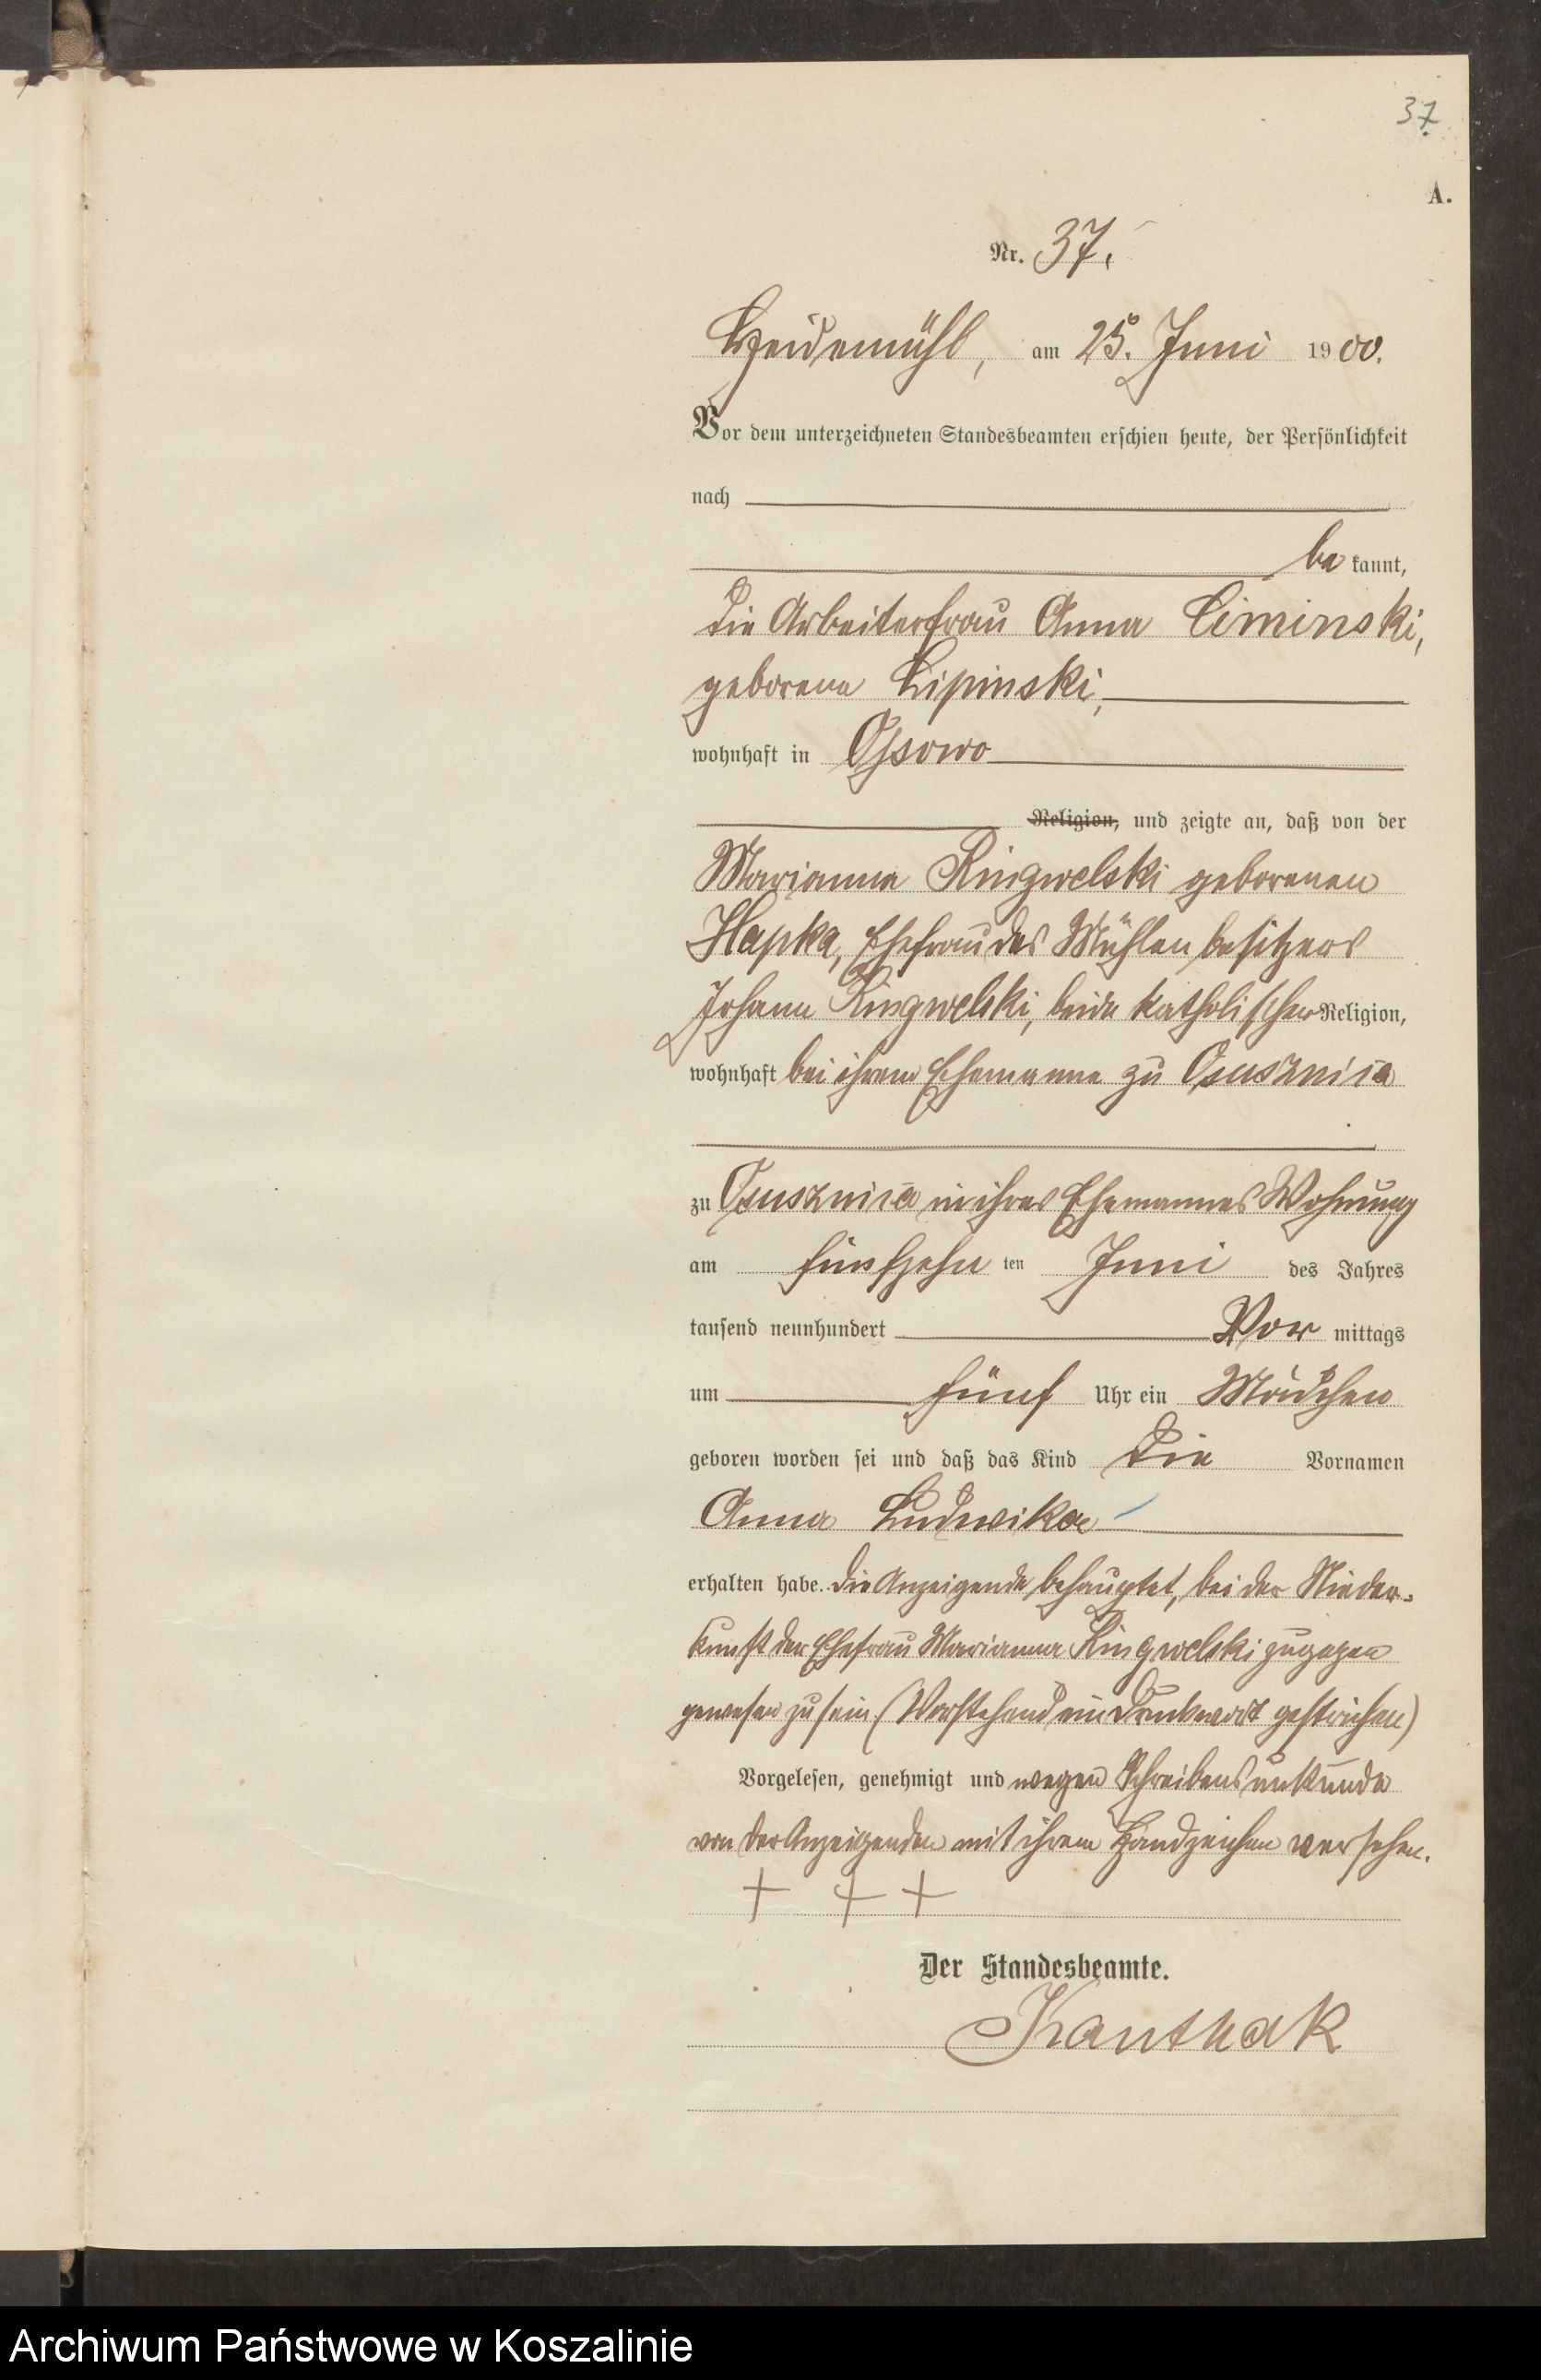 37.
A.
Nr. 37.
Heidemühl, am 25. Juni 1900.
Vor dem unterzeichneten Standesbeamten erschien heute, der Persönlichkeit
nach
be kannt,
die Arbeiterfrau Anna Ciminski,
geborene Lipinski,
wohnhaft in Ossowo
Religion, und zeigte an, daß von der
Marianna Ringwelski geborenen
Hapka, Ehefrau des Mühlenbesitzers
Johann Ringwelski, beide katholischer Religion,
wohnhaft bei ihrem Ehemanne zu Osusznica
zu Osusznica in ihres Ehemannes Wohnung
am fünfzehn ten Juni des Jahres
tausend neunhundert Vor mittags
um fünf Uhr ein Mädchen
geboren worden sei und daß das Kind die Vornamen
Anna Ludwika
erhalten habe. Die Anzeigende behauptet, bei der Nieder-
kunft der Ehefrau Marianna Ringwelski zugegen
gewesen zu sein (Vorstehend ein Druckwort gestrichen)
Vorgelesen, genehmigt und wegen Schreibensunkunde
von der Anzeigenden mit ihrem Handzeichen versehen.
+ + +
Der Standesbeamte.
Kanthak
Archiwum Państwowe w Koszalinie